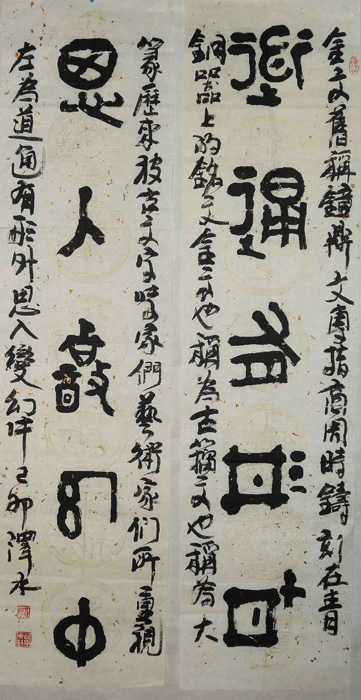 金文舊稱鐘鼎文專指商周時鑄刻在青
道通有形外
銅器上的銘文金文也稱為古籀文也稱為大
篆歷來被古文字學家們藝術家們所重視
思入變幻中
左為道通有形外思入變幻中己卯澤水